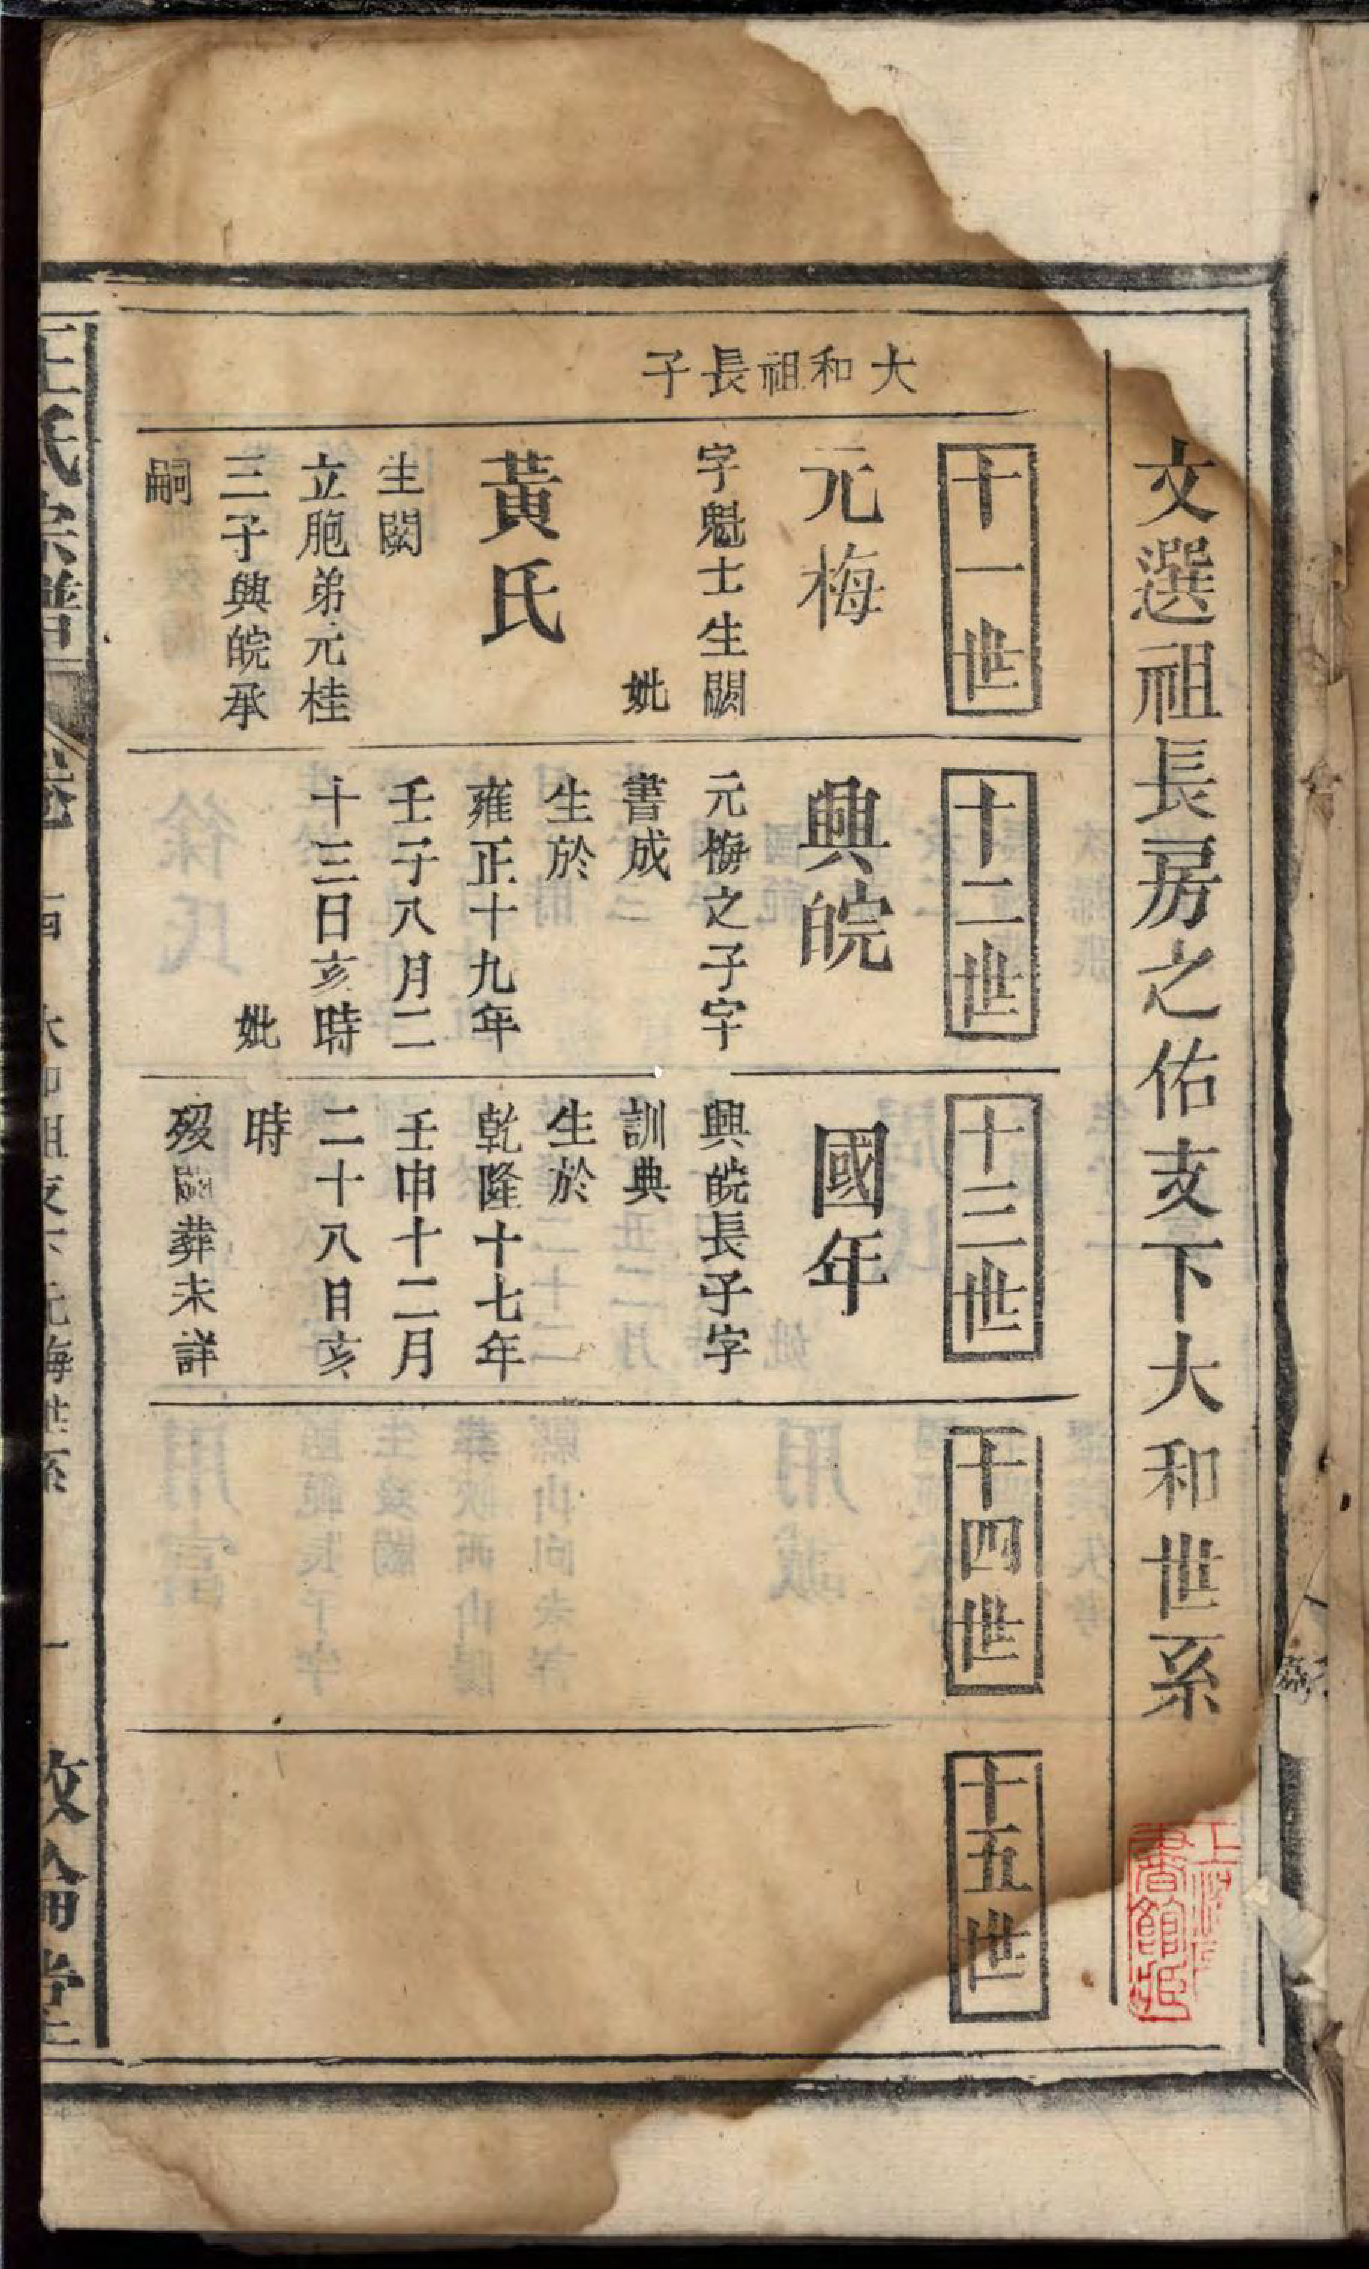 文選祖長房之佑支下大和世系
大和祖長子
十一世
元梅
字魁士生闕
妣
黃氏
生闕
立胞弟元桂
三子興皖承
嗣
十二世
興皖
元梅之子字
書成
生於
雍正十九年
壬子八月二
十三日亥時
妣
十三世
國年
興皖長子字
訓典
生於
乾隆十七年
壬申十二月
二十八日亥
時
歿闕葬未詳
十四世
十五世
王氏宗譜
卷
大和祖支下元梅世系
一
敦倫堂